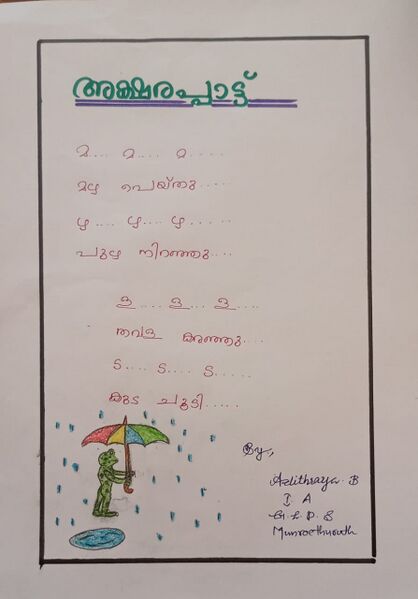 അക്ഷരപ്പാട്ട്
മ.... മ.... മ.....
മഴ പെയ്തു.....
ഴ.... ഴ.... ഴ.....
പുഴ നിറഞ്ഞു....
ള.... ള.... ള....
തവള കരഞ്ഞു....
ട.... ട.... ട.....
കുട ചൂടി......
By,
Adithraya. B
I A
G. L. P. S
Munroethuruth